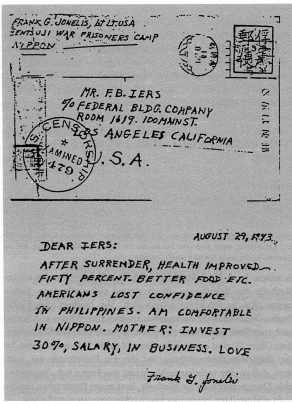 FRANK G. JONELIS, 1ST LT. USA
ZENTSUJI WAR PRISONERS CAMP
NIPPON
MR. F.B. IERS
% FEDERAL BLDG. COMPANY
ROOM 1619. 100 MAIN ST.
LOS ANGELES CALIFORNIA
U.S.A.
U.S. CENSORSHIP
EXAMINED
AUGUST 29, 1943.
DEAR IERS:
AFTER SURRENDER, HEALTH IMPROVED
FIFTY PERCENT. BETTER FOOD ETC.
AMERICANS LOST CONFIDENCE
IN PHILIPPINES. AM COMFORTABLE
IN NIPPON. MOTHER: INVEST
30%, SALARY, IN BUSINESS. LOVE
Frank G. Jonelis